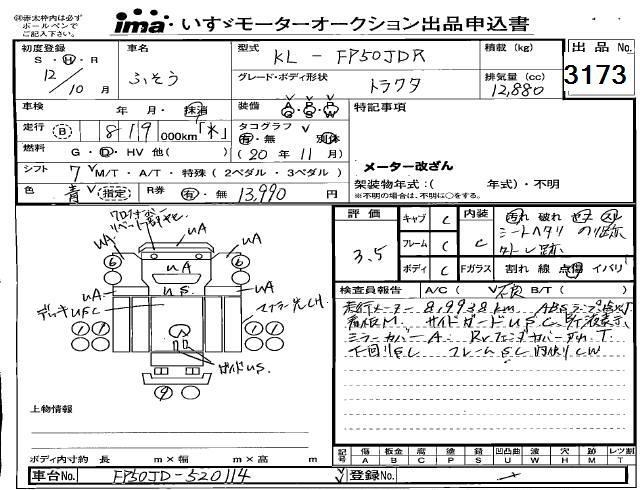 ※赤太枠内は必ず
ボールペンで
ご記入下さい。
ima・いすゞモーターオークション出品申込書
初度登録
S・H・R
12/10 月
車名
ふそう
型式
KL-FP50JDR
積載 (kg)
出品 No.
3173
グレード・ボディ形状
トラクタ
排気量 (cc)
12,880
車検
年 月・抹消
装備
A P P
G S W
特記事項
走行 B
819 000km「*」
タコグラフ
有・無 別体
(20年11月)
燃料
G・D・HV 他( )
メーター改ざん
シフト
7 M/T・A/T・特殊(2ペダル・3ペダル)
架装物年式:( 年式)・不明
※架装物の場合は、不明に○をする。
色
青 (指定)
R券
有・無 13,990 円
評価
3.5
キャブ C
フレーム C
ボディ C
内装
C
汚れ 破れ
シートヘタリ
Fガラス
割れ 線 点傷 イバリ
検査員報告
A/C( ) B/T( )
走行メーター 819938km ABSランプ点灯
看板M. サイドガードUSC.
ミラーカバーA. RrフェンダカバーT
下回りSC フレームSC
uA
uA
uA
uA
uA
us
6
6
9
デッキusc
ガイドus.
上物情報
ボディ内寸約 長 m×幅 m×高 m
記号
傷 A
板金 B
腐 C
塗 P
錆 S
凹凸曲 U
波 W
穴 H
跡 M
レツ割 T
車台No.
FP50JD-520114
登録No.